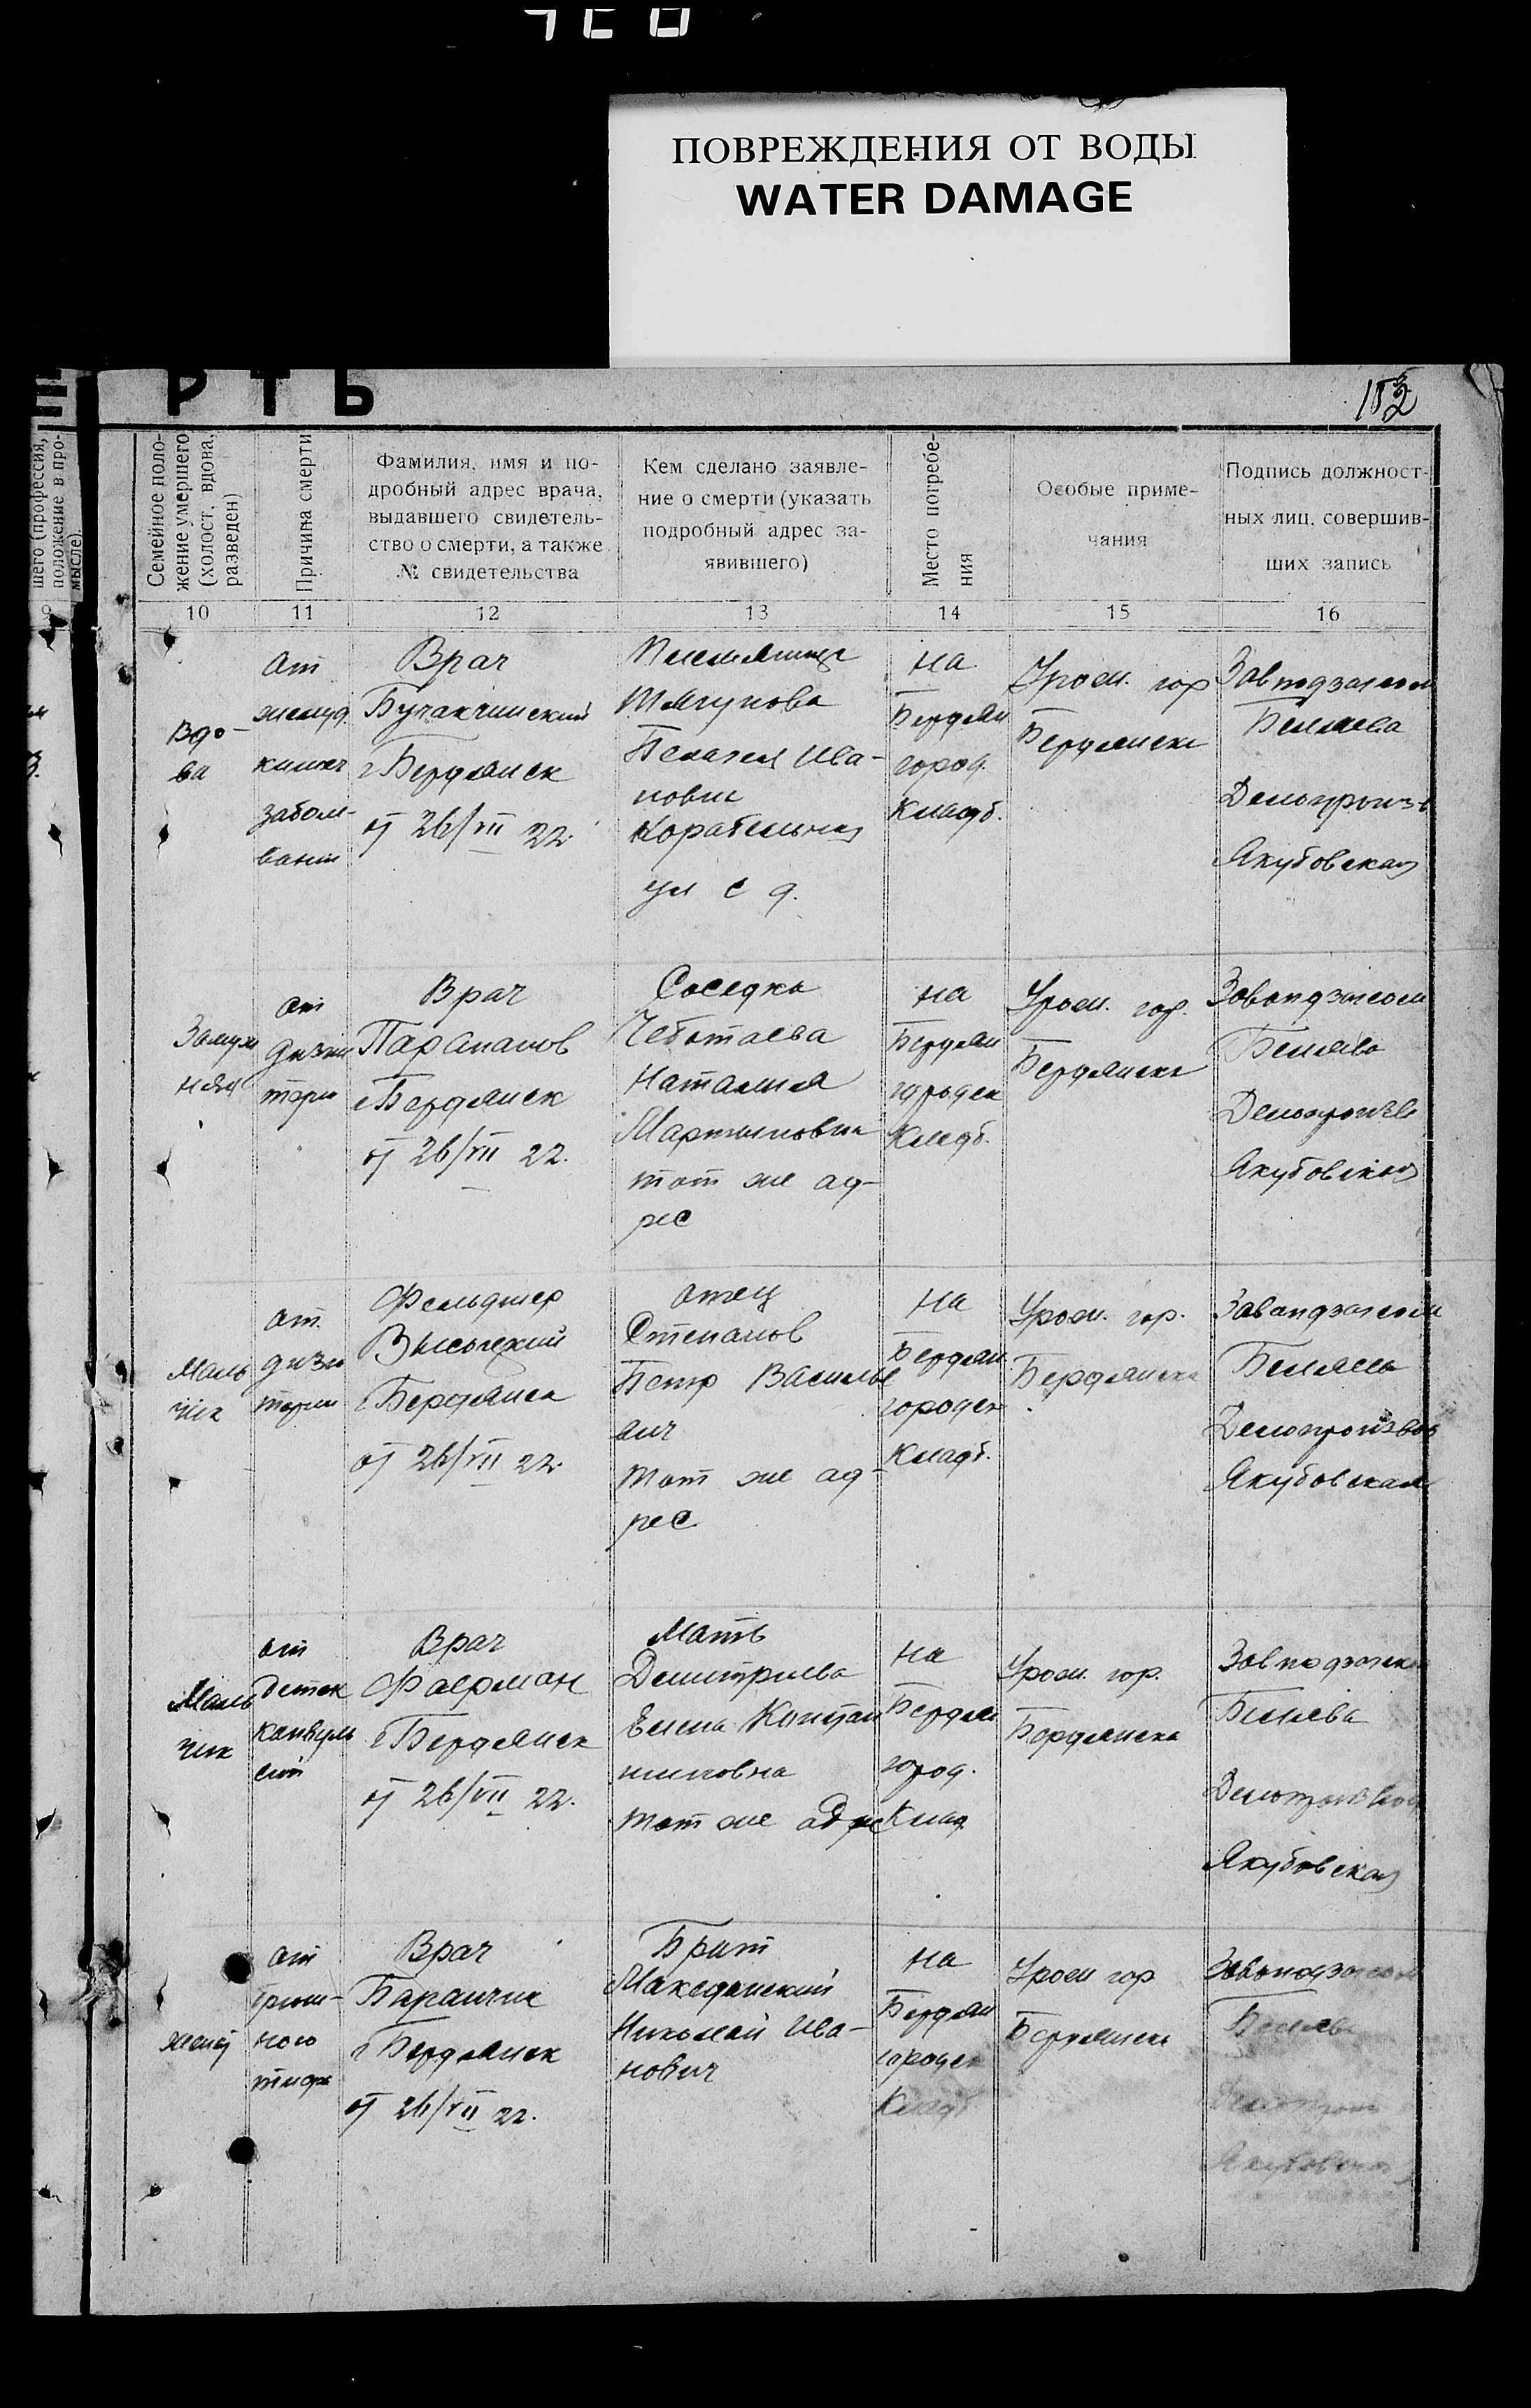 ПОВРЕЖДЕНИЯ ОТ ВОДЫ
WATER DAMAGE
РТЬ
152
шего (профессия,
положение в про-
мысле).
Семейное поло-
жение умершего
(холост, вдова,
разведен)
Причина смерти
Фамилия, имя и по-
дробный адрес врача,
выдавшего свидетель-
ство о смерти, а также
№ свидетельства
Кем сделано заявле-
ние о смерти (указать
подробный адрес за-
явившего)
Место погребе-
ния
Особые приме-
чания
Подпись должност-
ных лиц, совершив-
ших запись
9
10
11
12
13
14
15
16
Вдо-
ва
От
желуд.
кишеч
забол-
вания
Врач
Бучакчийский
г Бердянск
от 26/VII 22.
Тягунова
Пелагея Ива-
новна
Корабельная
ул с д.
на
Бердян
город.
Кладб.
Урож. гор
Бердянска
Завподзагсом
Беляева
Делопроизв
Якубовская
Замуж
няя
от
дизен
терии
Врач
Парапанов
г Бердянск
от 26/VII 22.
Соседка
Чеботаева
Наталия
Мартыновна
тот же ад-
рес
на
Бердян
городск
Кладб.
Урож. гор.
Бердянска
Завподзагсом
Беляева
Делопроизв
Якубовская
Маль
чик
от.
дизен
терии
Фельдшер
Высоцкий
г Бердянск
от 26/VII 22.
отец
Степанов
Петр Василье
вич
тот же ад-
рес
на
Бердян
городск
Кладб.
Урож. гор.
Бердянска
Завподзагсом
Беляева
Делопроизвод
Якубовская
Маль
чик
от
детск
конвуль
сий
Врач
Фаерман
г Бердянск
от 26/VII 22.
Мать
Дмитриева
Елена Констан
тиновна
тот же адрес
на
Бердян
город.
Клад.
Урож. гор.
Бердянска
Завподзагсом
Беляева
Делопроизвод
Якубовская
женат
от
брюш-
ного
тифа
Врач
Баранчик
г Бердянск
от 26/VII 22.
Брат
Македонский
Николай Ива-
нович
на
Бердян
городск
Кладб
Урож гор
Бердянска
Завподзагсом
Беляева
Делопроиз
Якубовская